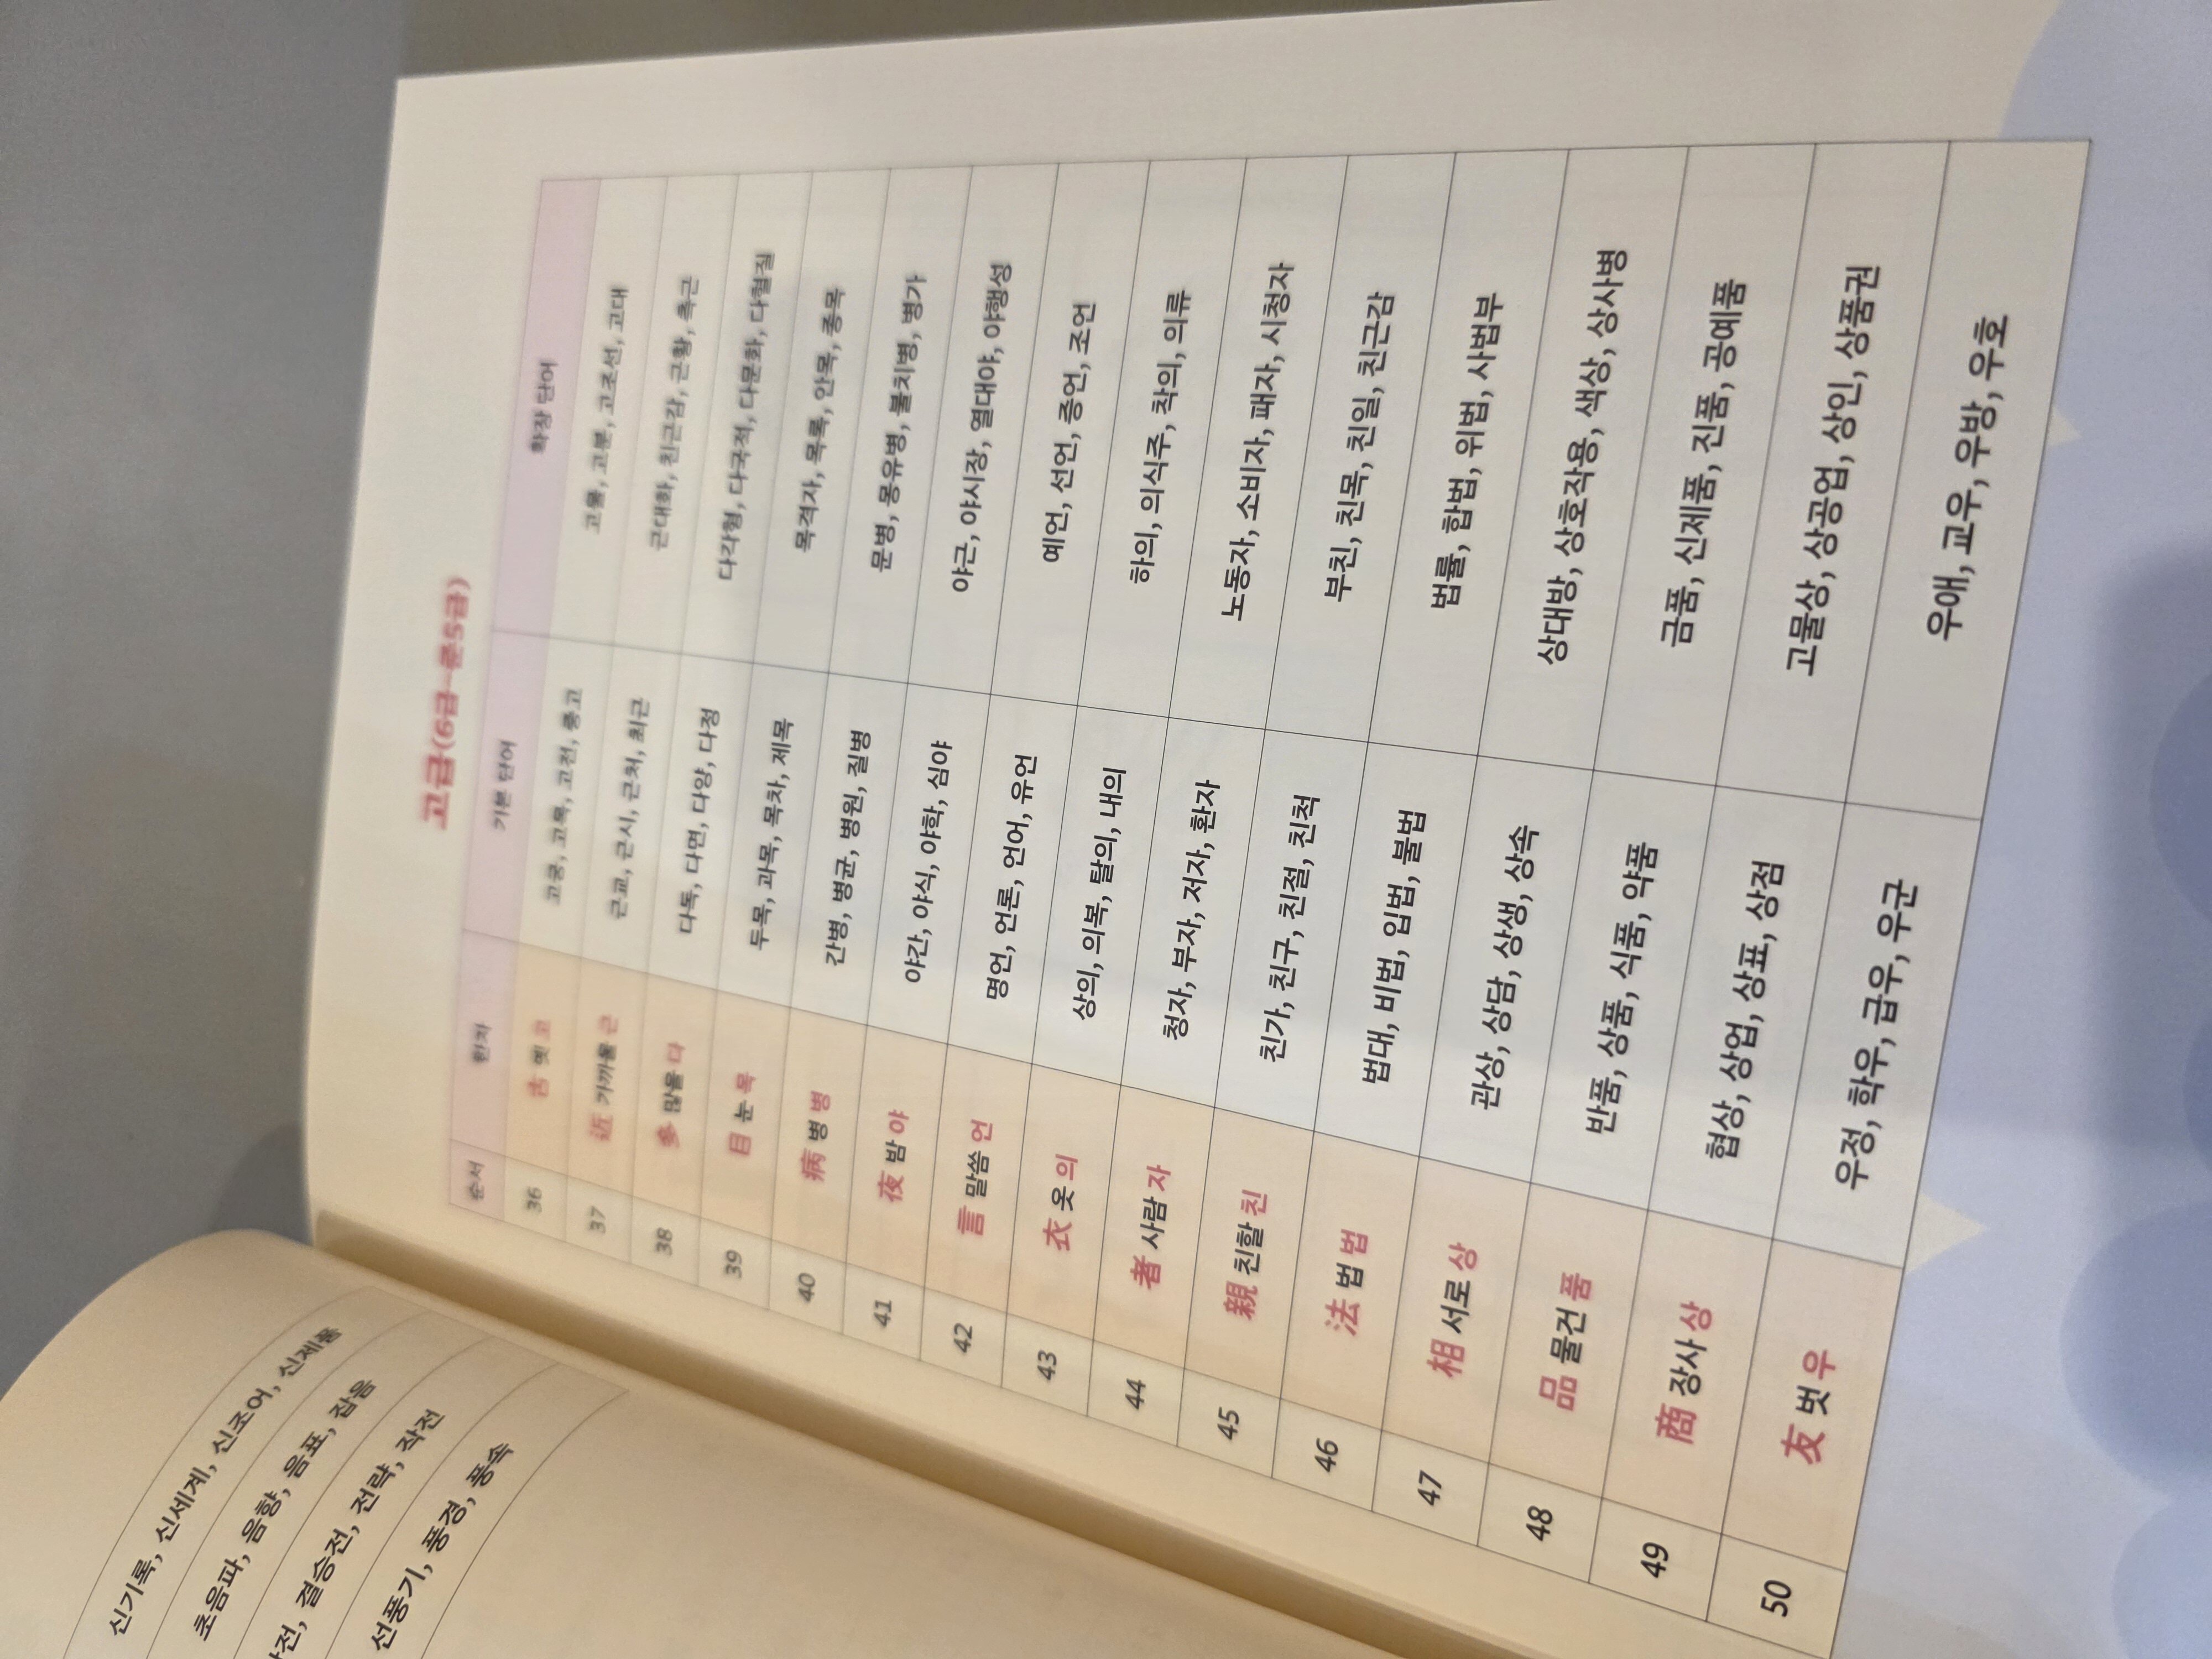 신기록, 신세계, 신조어, 신제품
초음파, 음향, 음표, 잡음
결승전, 전략, 작전
선풍기, 풍경, 풍속
고급(6급~준5급)
순서 한자 기본 단어 확장 단어
36 古 옛 고 고궁, 고목, 고전, 중고 고물, 고분, 고조선, 고대
37 近 가까울 근 근교, 근시, 근처, 최근 근대화, 친근감, 근황, 측근
38 多 많을 다 다독, 다면, 다양, 다정 다각형, 다국적, 다문화, 다혈질
39 目 눈 목 두목, 과목, 목차, 제목 목격자, 목록, 안목, 종목
40 病 병 병 간병, 병균, 병원, 질병 문병, 몽유병, 불치병, 병가
41 夜 밤 야 야간, 야식, 야학, 심야 야근, 야시장, 열대야, 야행성
42 言 말씀 언 명언, 언론, 언어, 유언 예언, 선언, 증언, 조언
43 衣 옷 의 상의, 의복, 탈의, 내의 하의, 의식주, 착의, 의류
44 者 사람 자 청자, 부자, 저자, 환자 노동자, 소비자, 패자, 시청자
45 親 친할 친 친가, 친구, 친절, 친척 부친, 친목, 친일, 친근감
46 法 법 법 법대, 비법, 입법, 불법 법률, 합법, 위법, 사법부
47 相 서로 상 관상, 상담, 상생, 상속 상대방, 상호작용, 색상, 상사병
48 品 물건 품 반품, 상품, 식품, 약품 금품, 신제품, 진품, 공예품
49 商 장사 상 협상, 상업, 상표, 상점 고물상, 상공업, 상인, 상품권
50 友 벗 우 우정, 학우, 급우, 우군 우애, 교우, 우방, 우호